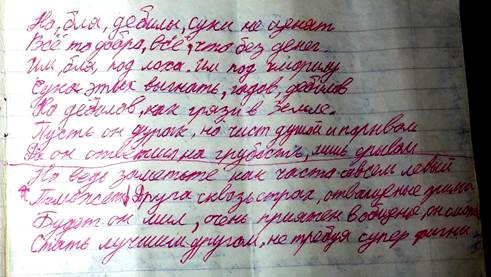 Но, бля, дебилы, суки не ценят
Всё то добро, всё, что без денег.
Им, бля, под лоха. Им под
Сука этих выгнать, гадов, дебилов
На дебилов, как грязи в земле.
Пусть он дурак, но чист душой и порывом
Да он ответил на грубость, лишь
Но ведь заметьте как часто совсем левый
Поможет друга сквозь страх, отващение
Будет он мил, очень приятен в общение, он
Стать лучшим другом, не требуя супер фигни